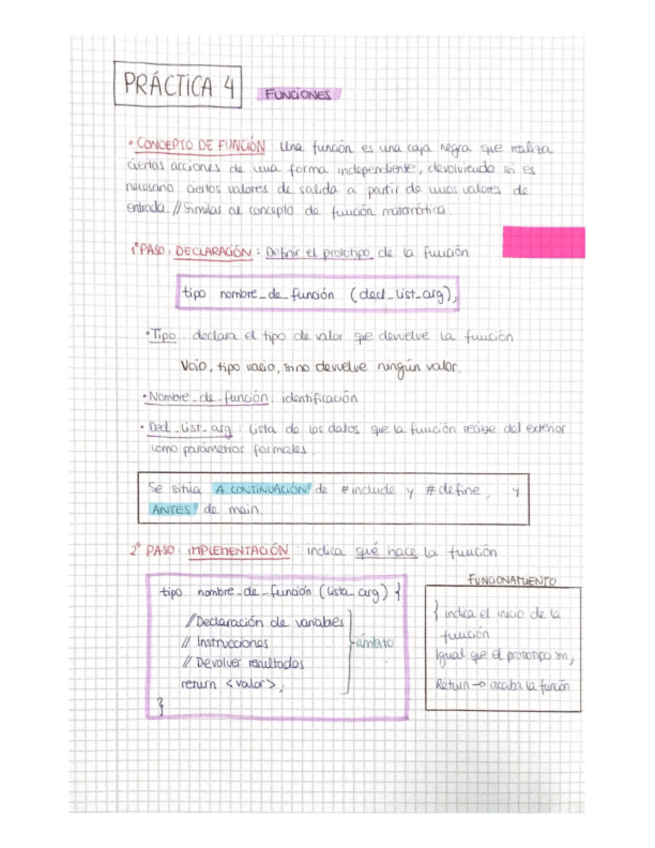 PRÁCTICA 4
FUNCIONES
• CONCEPTO DE FUNCIÓN Una función es una caja negra que realiza
ciertas acciones de una forma independiente, devolviendo si es
necesario ciertos valores de salida a partir de unos valores de
entrada. // Similar al concepto de función matemática.
1º PASO: DECLARACIÓN: Definir el prototipo de la función
tipo nombre_de_función (decl_list_arg);
• Tipo: declara el tipo de valor que devuelve la función
Void, tipo vacio, si no devuelve ningún valor.
• Nombre_de_función: identificación
• Decl_list_arg: lista de los datos que la función recibe del exterior
como parámetros formales.
Se sitúa A CONTINUACIÓN de #include y #define, y
ANTES de main.
2º PASO: IMPLEMENTACIÓN: indica qué hace la función
tipo nombre_de_función (lista_arg) {
// Declaración de variables
// Instrucciones
// Devolver resultados
return <valor>;
}
ámbito
FUNCIONAMIENTO
{ indica el inicio de la
función
Igual que el prototipo sin ;
Return → acaba la función